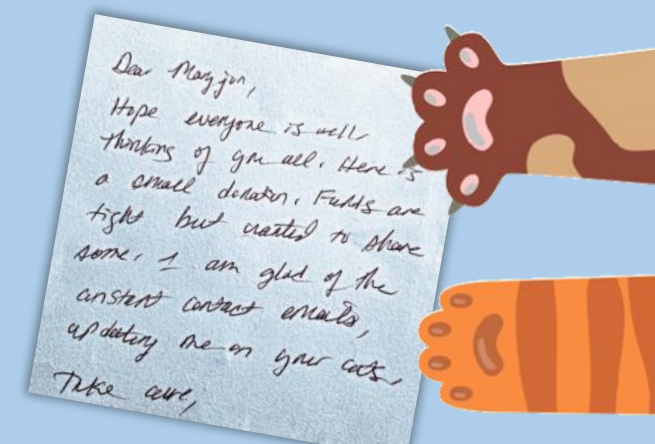 Dear Maryjon,
Hope everyone is well,
thinking of you all. Here is
a small donation. Funds are
tight but wanted to share
some. I am glad of the
constant contact emails,
updating me on your cats.
Take care,